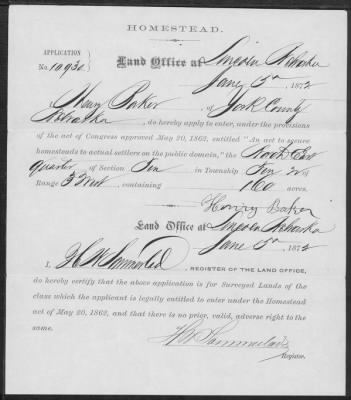 HOMESTEAD.
APPLICATION
No. 10930
Land Office at Lincoln Nebraska
June 5th 1872
I, Henry Baker, of York County
Nebraska, do hereby apply to enter, under the provisions
of the act of Congress approved May 20, 1862, entitled "An act to secure
homesteads to actual settlers on the public domain," the North East
Quarter of Section Ten in Township Ten
Range 3 West, containing 160 acres.
Henry Baker
Land Office at Lincoln Nebraska
June 5th 1872
I, REGISTER OF THE LAND OFFICE,
do hereby certify that the above application is for Surveyed Lands of the
class which the applicant is legally entitled to enter under the Homestead
act of May 20, 1862, and that there is no prior, valid, adverse right to the
same.
Register.